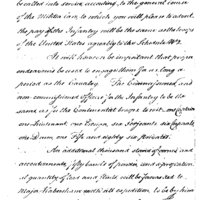 be called into service according to the general tenor
of the Militia Law, to which you will please to attend
the pay of the Infantry will be the same as the troops
of the United States agreeably to the Schedule No 2.
It will however be important that you en
endeavour to engage them for as long a
period as the Cavalry. The Commissioned, and
non commissioned officers to the Infantry to be the
same as to the Continental troops to wit, one Captain
one Lieutenant one Ensign, six Serjeants six Corporals
one Drum, one Fife and eighty six Privates.
An additional thousand stand of arms and
accoutrements, fifty barrels of powder, and a proportion
quantity of lead and flints will be forwarded to
Major Habersham with all expedition to be by him